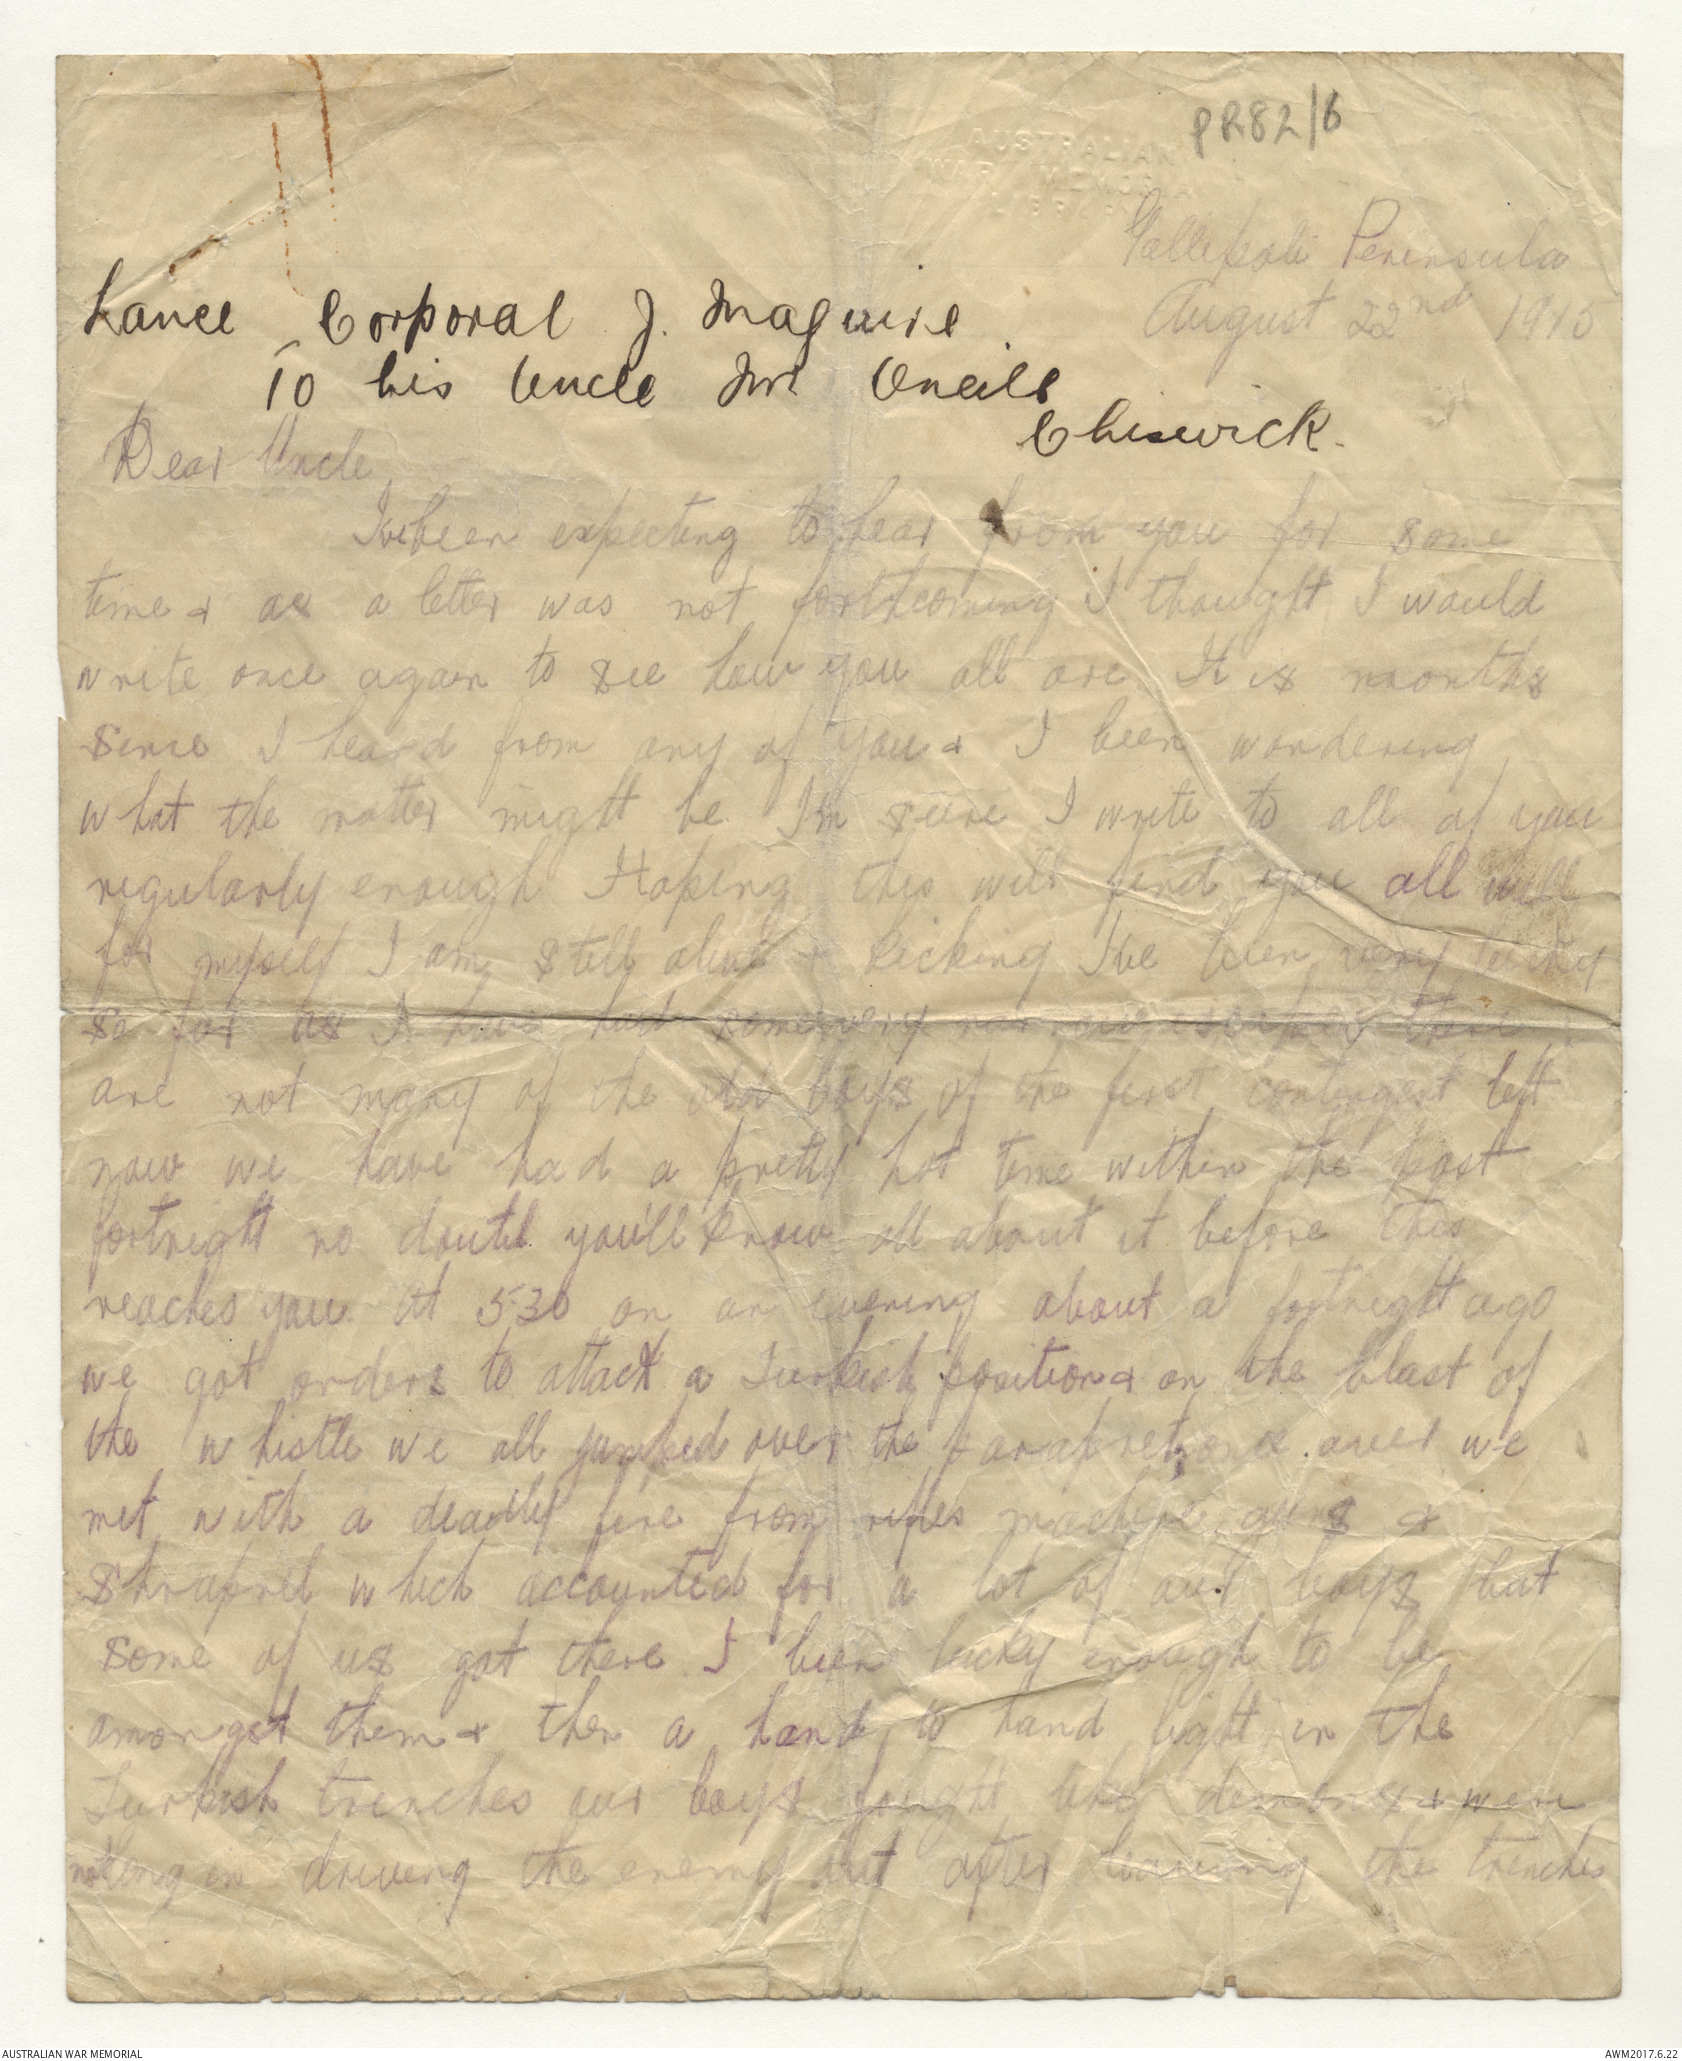 PR82/6
AUSTRALIAN
WAR MEMORIAL
Gallipoli Peninsula
August 22nd 1915
Lance Corporal J. Maguire
To his Uncle Mr Oneill
Chiswick.
Dear Uncle
Ive been expecting to hear from you for some
time & as a letter was not forthcoming I thought I would
write once again to see how you all are. It is months
since I heard from any of you & I been wondering
what the matter might be. Im sure I write to all of you
regularly enough Hoping this will find you all well
for myself I am still alive & kicking Ive been very lucky
so far as I have had some very narrow escapes there
are not many of the old boys of the first contingent left
now we have had a pretty hot time within the past
fortnight no doubt you'll know all about it before this
reaches you. At 530 on an evening about a fortnight ago
we got orders to attack a Turkish position & on the blast of
the whistle we all jumped over the parapret, once over we
met with a deadly fire from rifles machine guns &
shrapnel which accounted for a lot of our boys but
some of us got there I been lucky enough to be
amongst them & then a hand to hand fight in the
Turkish trenches our boys fought like demons & were
not long in driving the enemy out after the trenches
AUSTRALIAN WAR MEMORIAL
AWM2017.6.22